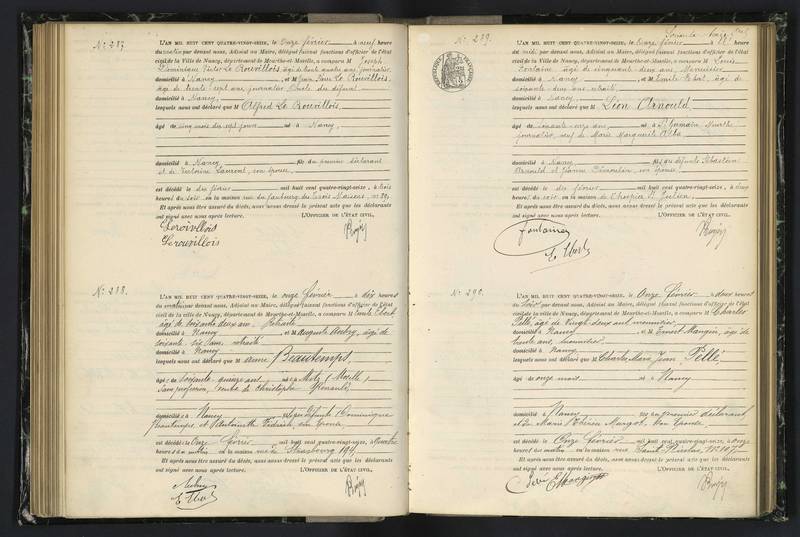 N° 287
L'AN MIL HUIT CENT QUATRE-VINGT-SEIZE, le Onze février à neuf heures
du matin par devant nous, Adjoint au Maire, délégué faisant fonctions d'officier de l'État
civil de la Ville de Nancy, département de Meurthe-et-Moselle, a comparu M Joseph
Dominique Le Rouvillois, âgé de trente quatre ans, journalier
domicilié à Nancy, et M Jean Le Rouvillois,
âgé de trente sept ans, journalier, oncle du défunt
domicilié à Nancy,
lesquels nous ont déclaré que M Alfred Le Rouvillois,
âgé de cinq mois dix sept jours né à Nancy,
domicilié à Nancy, fils du premier déclarant
et de Laurent, son épouse,
est décédé le dix février mil huit cent quatre-vingt-seize, à trois
heures du soir en la maison rue du faubourg des Trois Maisons, n° 39,
Et après nous être assuré du décès, nous avons dressé le présent acte que les déclarants
ont signé avec nous après lecture. L'OFFICIER DE L'ÉTAT CIVIL,
Lerouvillois
Lerouvillois
N° 288
L'AN MIL HUIT CENT QUATRE-VINGT-SEIZE, le onze février à dix heures
du matin par devant nous, Adjoint au Maire, délégué faisant fonctions d'officier de l'État
civil de la Ville de Nancy, département de Meurthe-et-Moselle, a comparu M Emile
âgé de soixante deux ans, retraité
domicilié à Nancy, et M Auguste Aubry, âgé de
soixante six ans, retraité
domicilié à Nancy
lesquels nous ont déclaré que M Anne Beautemps,
âgé de Soixante quinze ans, né à Metz (Moselle)
sans profession, veuve de Christophe
domiciliée à Nancy fille des défunts Dominique
Beautemps, et Antoinette son épouse,
est décédée le Onze février mil huit cent quatre-vingt-seize, à quatre
heures du matin en la maison rue de Strasbourg 194,
Et après nous être assuré du décès, nous avons dressé le présent acte que les déclarants
ont signé avec nous après lecture. L'OFFICIER DE L'ÉTAT CIVIL,
Aubry
N° 289
L'AN MIL HUIT CENT QUATRE-VINGT-SEIZE, le Onze février à heure
du midi par devant nous, Adjoint au Maire, délégué faisant fonctions d'officier de l'État
civil de la Ville de Nancy, département de Meurthe-et-Moselle, a comparu M Louis
Fontaine âgé de cinquante deux ans, Menuisier
domicilié à Nancy et M Emile âgé de
soixante deux ans, retraité
domicilié à Nancy,
lesquels nous ont déclaré que M Léon Arnould
âgé de soixante onze ans, né à St Germain, Meurthe
journalier, veuf de Marie Marguerite
domicilié à Nancy, fils des défunts Sébastien
Arnould et Jeanne son épouse,
est décédé le dix février mil huit cent quatre-vingt-seize, à cinq
heures du soir en la maison de l'hospice St Julien
Et après nous être assuré du décès, nous avons dressé le présent acte que les déclarants
ont signé avec nous après lecture. L'OFFICIER DE L'ÉTAT CIVIL,
Fontaine
N° 290
L'AN MIL HUIT CENT QUATRE-VINGT-SEIZE, le Onze février à deux heures
du soir par devant nous, Adjoint au Maire, délégué faisant fonctions d'officier de l'État
civil de la Ville de Nancy, département de Meurthe-et-Moselle, a comparu M Charles
Pellé, âgé de vingt deux ans
domicilié à Nancy, et M Ernest Mangin, âgé de
trente ans,
domicilié à Nancy
lesquels nous ont déclaré que M Charles Marie Jean Pellé
âgé de onze mois né à Nancy
domicilié à Nancy fils du premier déclarant,
et de Marie Thérèse Mangot, son épouse
est décédé le Onze février mil huit cent quatre-vingt-seize, à onze
heures du matin en la maison rue Saint Nicolas, N° 107
Et après nous être assuré du décès, nous avons dressé le présent acte que les déclarants
ont signé avec nous après lecture. L'OFFICIER DE L'ÉTAT CIVIL,